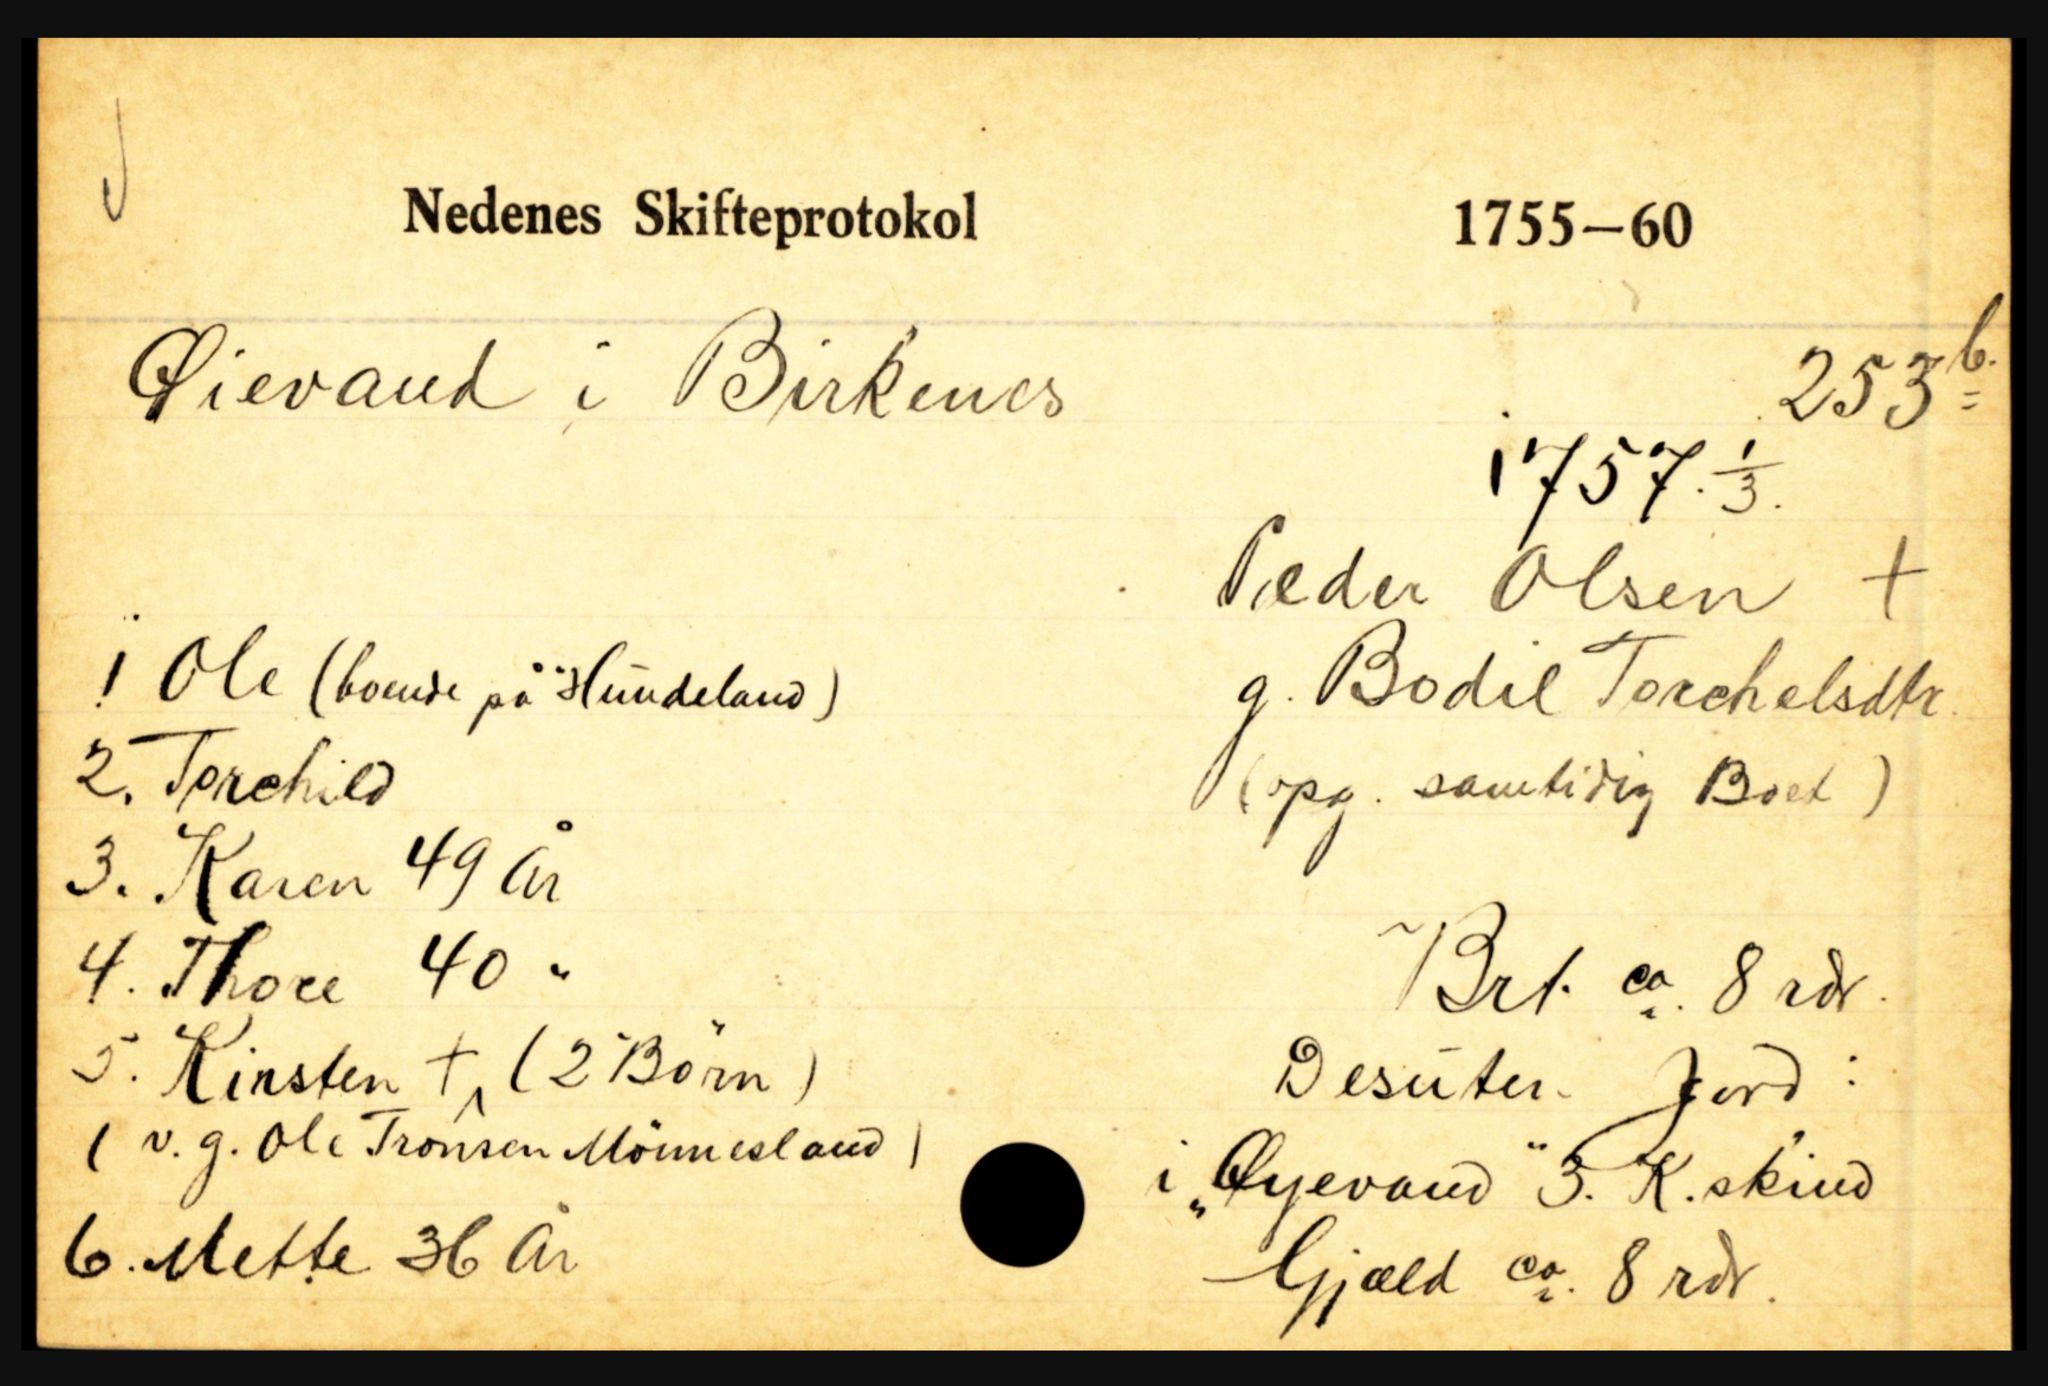 Nedenes Skifteprotokol 1755—60
Øievand i Birkenes 253 b.
1757. 1/3.
Peder Olsen +
g. Bodil Torchelsdtr.
(opg. samtidig Boet)
1 Ole (boende på "Hundeland)
2. Torchild
3. Karen 49 År
4. Thore 40 "
5. Kirsten + (2 Börn)
( v. g. Ole Tronsen Mönnesland )
6. Mette 36 År
Brt. ca. 8 rdr.
Desuten Jord :
i „Øyevand" 3. K. skind
Gjæld ca. 8 rdr.